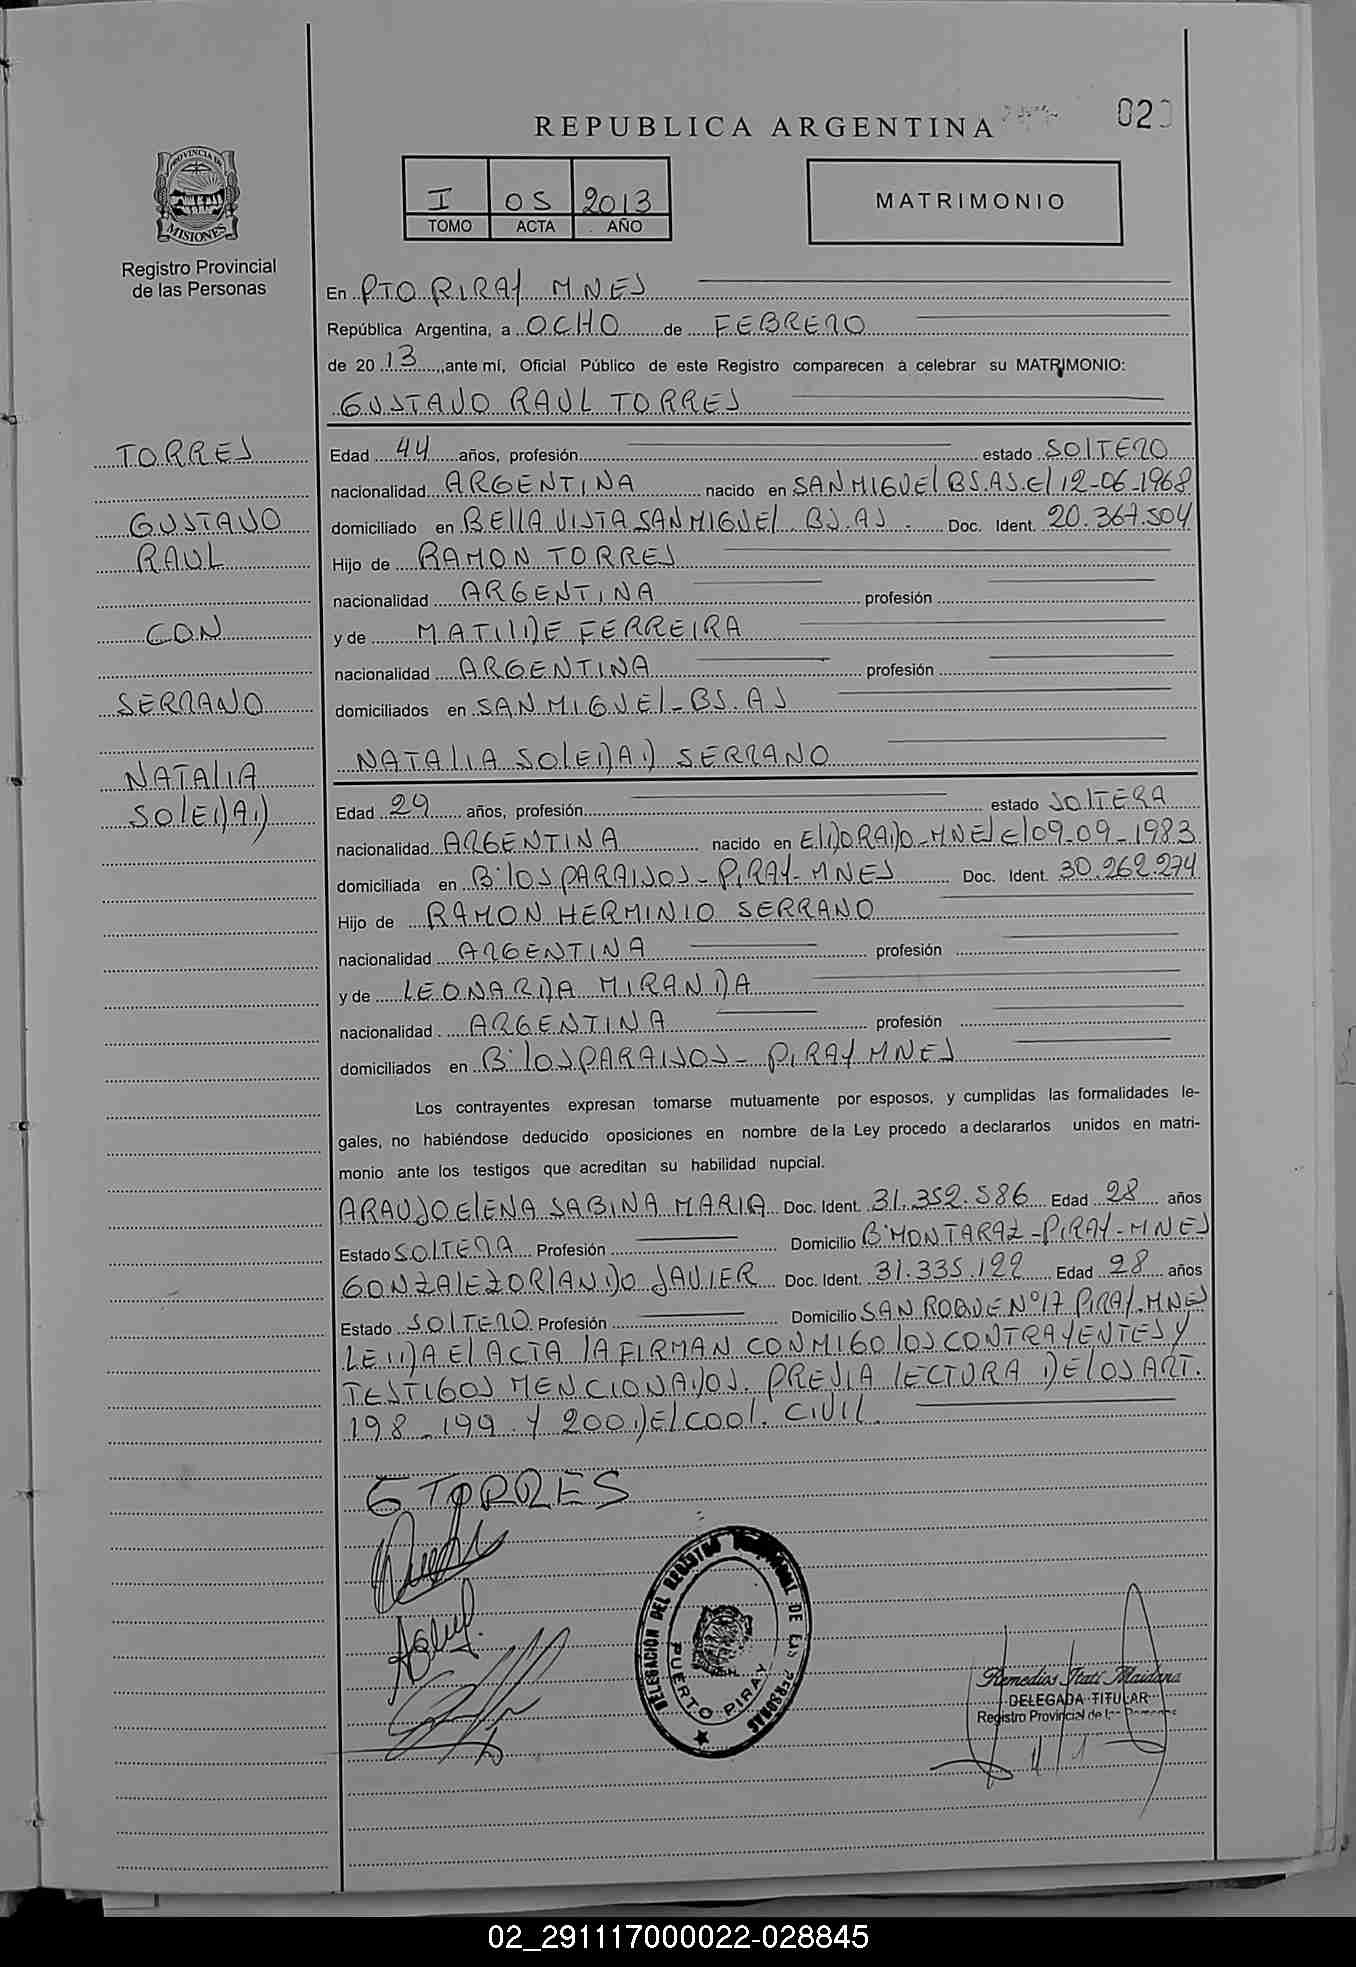 REPUBLICA ARGENTINA
02
PROVINCIA DE
MISIONES
Registro Provincial
de las Personas
I 05 2013
TOMO ACTA AÑO
MATRIMONIO
En PTO PIRAY MNES
República Argentina, a OCHO de FEBRERO
de 2013, ante mí, Oficial Público de este Registro comparecen a celebrar su MATRIMONIO:
GUSTAVO RAUL TORRES
TORRES
GUSTAVO
RAUL
CON
SERRANO
NATALIA
SOLEDAD
Edad 44 años, profesión estado SOLTERO
nacionalidad ARGENTINA nacido en SAN MIGUEL BS.AS. El 12-06-1968
domiciliado en BELLA VISTA SAN MIGUEL BS.AS. Doc. Ident. 20.367.504
Hijo de RAMON TORRES
nacionalidad ARGENTINA profesión
y de MATILDE FERREIRA
nacionalidad ARGENTINA profesión
domiciliados en SAN MIGUEL - BS.AS
NATALIA SOLEDAD SERRANO
Edad 29 años, profesión estado SOLTERA
nacionalidad ARGENTINA nacido en ELDORADO-MNES El 09-09-1983
domiciliada en B° LOS PARAISOS - PIRAY - MNES Doc. Ident. 30.262.274
Hijo de RAMON HERMINIO SERRANO
nacionalidad ARGENTINA profesión
y de LEONARDA MIRANDA
nacionalidad ARGENTINA profesión
domiciliados en B° LOS PARAISOS - PIRAY MNES
Los contrayentes expresan tomarse mutuamente por esposos, y cumplidas las formalidades le-
gales, no habiéndose deducido oposiciones en nombre de la Ley procedo a declararlos unidos en matri-
monio ante los testigos que acreditan su habilidad nupcial.
ARAUJO ELENA SABINA MARIA Doc. Ident. 31.352.586 Edad 28 años
Estado SOLTERA Profesión Domicilio B° MONTARAZ - PIRAY - MNES
GONZALEZ ORLANDO JAVIER Doc. Ident. 31.335.122 Edad 28 años
Estado SOLTERO Profesión Domicilio SAN ROQUE N°17 PIRAY-MNES
LEIDA EL ACTA LA FIRMAN CONMIGO LOS CONTRAYENTES Y
TESTIGOS MENCIONADOS. PREVIA LECTURA DE LOS ART.
198 - 199 Y 200 DEL COD. CIVIL.
G TORRES
DELEGACION DEL REGISTRO PROVINCIAL DE LAS PERSONAS
PUERTO PIRAY
Remedios Itatí Maidana
DELEGADA TITULAR
Registro Provincial de las Personas
02_291117000022-028845